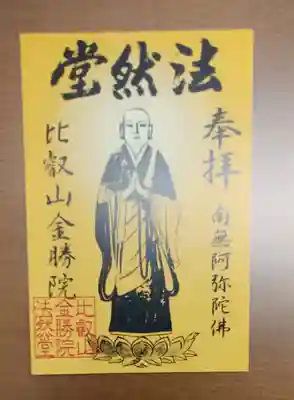 法然堂
奉拝
南無阿弥陀佛
比叡山金勝院
比叡山
金勝院
法然堂